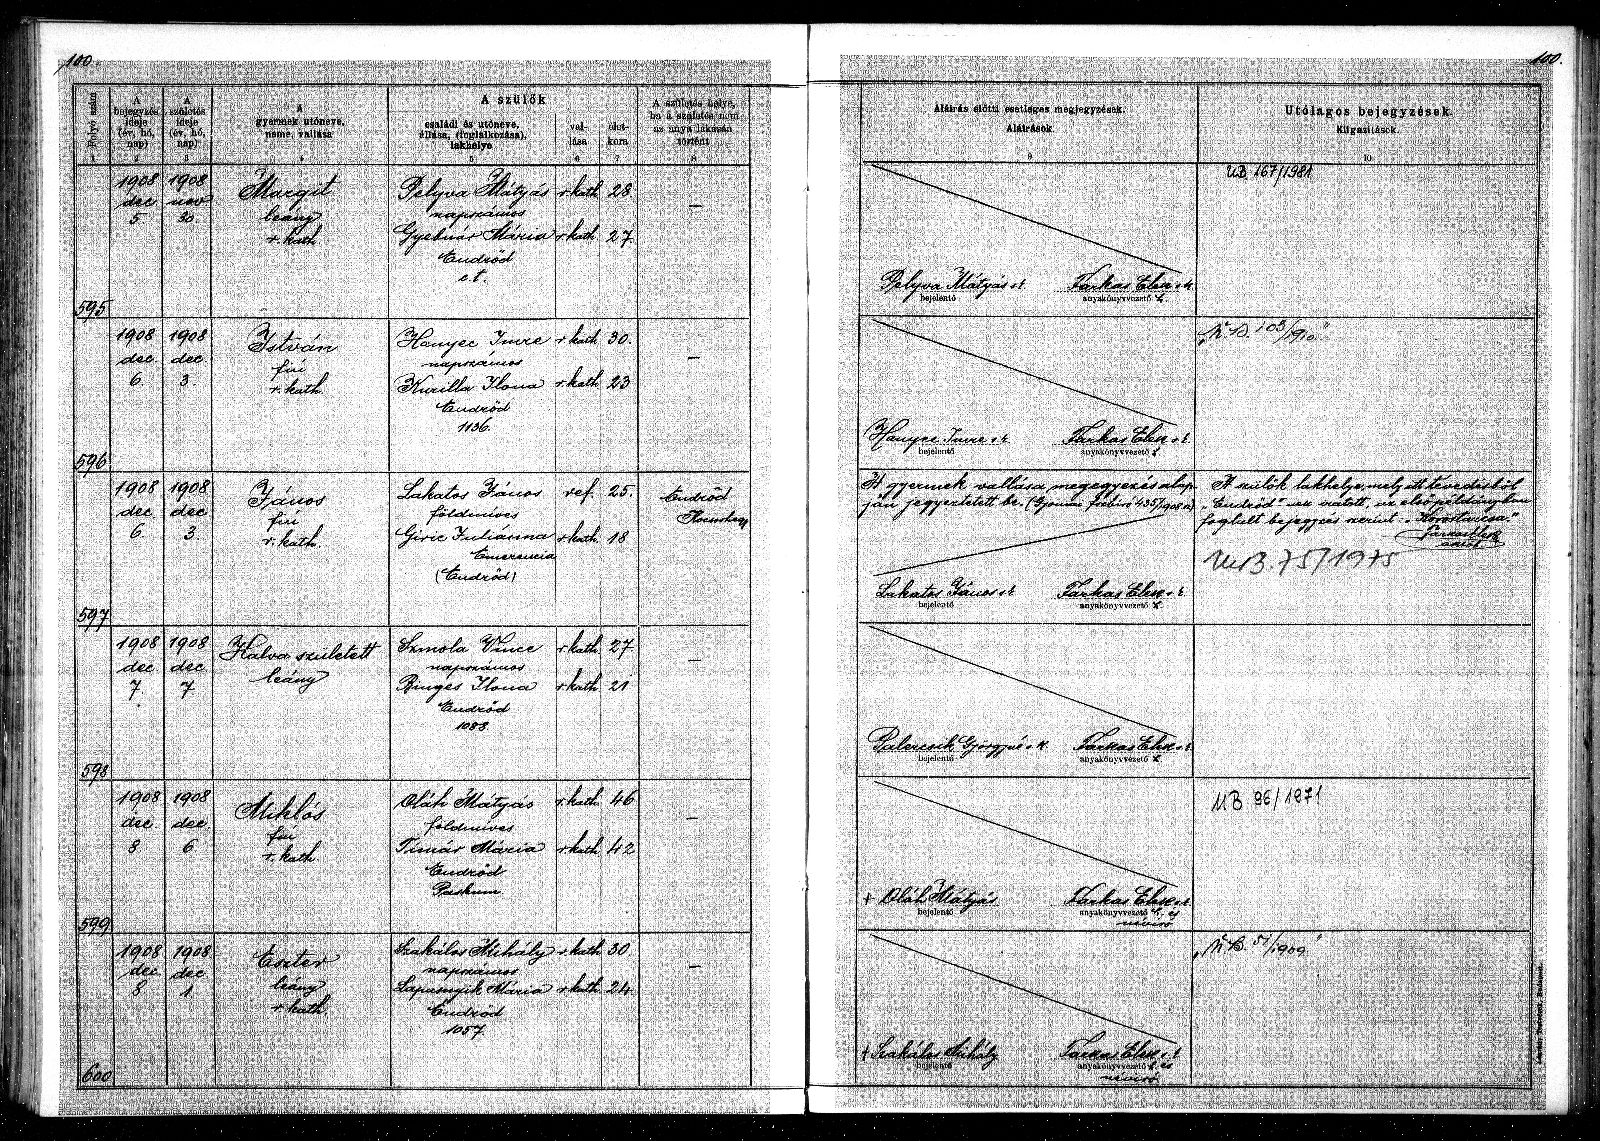 100.
Folyó szám
A bejegyzés ideje (év, hó, nap)
A születés ideje (év, hó, nap)
A gyermek utóneve, neme, vallása
A szülők
családi és utóneve, állása, (foglalkozása), lakhelye
vallása
életkora
A születés helye, ha a születés nem az anya lakásán történt
1 2 3 4 5 6 7 8
595
1908 dec 5
1908 nov 30.
Margit
leány
r. kath.
Pelyva Mátyás r. kath 28
napszámos
Gyebnár Mária r. kath 27
Endrőd
—
596
1908 dec. 6.
1908 dec. 3.
István
fiú
r. kath.
Hanyec Imre r. kath 30.
napszámos
Kurilla Ilona r. kath 23
Endrőd
1136.
—
597
1908 dec 6.
1908 dec 3.
János
fiú
r. kath.
Lakatos János ref. 25.
földmíves
Giric Juliánna r. kath 18
Emerencia
(Endrőd)
Endrőd
598
1908 dec. 7.
1908 dec. 7
Halva született
leány
Szmola Vince r. kath 27
napszámos
Binges Ilona r. kath 21
Endrőd
1088.
—
599
1908 dec. 8
1908 dec 6
Miklós
fiú
r. kath
Oláh Mátyás r. kath 46
földmíves
Tímár Mária r. kath 42
Endrőd
—
600
1908 dec 8
1908 dec 1.
Eszter
leány
r. kath.
Szakálos Mihály r. kath 30.
napszámos
Mária r. kath 24
Endrőd
1057.
—
100.
Aláírás előtti esetleges megjegyzések.
Aláírások.
9
Utólagos bejegyzések.
Kiigazítások.
10
UB 167/1981
Pelyva Mátyás s. k.
bejelentő
Farkas Elek s. k.
anyakönyvvezető h.
103/910
Hanyec Imre s. k.
bejelentő
Farkas Elek s. k.
anyakönyvvezető h.
A gyermek vallása megegyezés alap-
ján jegyeztetett be. (Gyomai főbíró 435/1908 sz)
A szülők lakhelye, mely itt tévedésből
„Endrőd"-nek iratott, az első példányban
foglalt bejegyzés szerint „Köröstarcsa."
Farkas Elek
75/1975
Lakatos János s. k.
bejelentő
Farkas Elek s. k.
anyakönyvvezető h.
Györgyné s. k.
bejelentő
Farkas Elek s. k.
anyakönyvvezető h.
UB 96/1971
+ Oláh Mátyás
bejelentő
Farkas Elek s. k.
anyakönyvvezető h. és
névíró
51/1909
+ Szakálos Mihály
bejelentő
Farkas Elek s. k.
anyakönyvvezető h. és
névíró